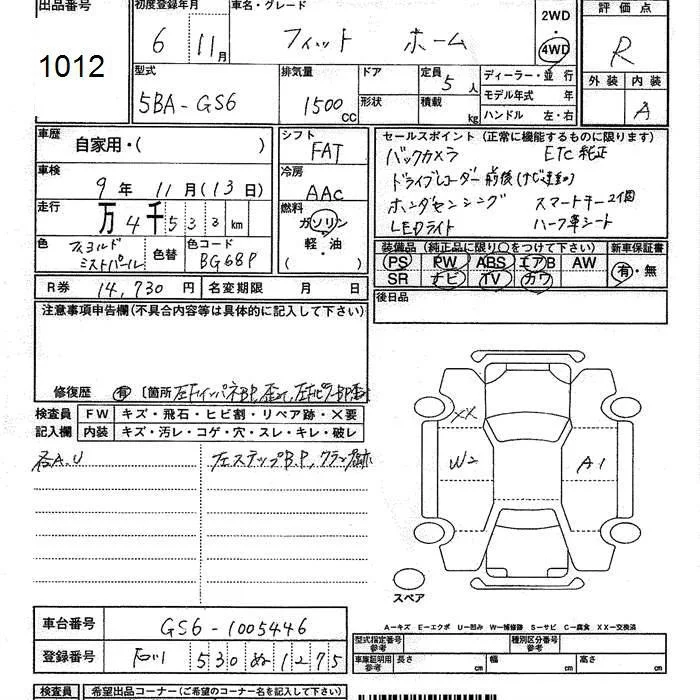 出品番号
1012
初度登録年月
6 11月
車名・グレード
フィット ホーム
2WD
4WD
評価点
R
外装 内装
A
型式
5BA-GS6
排気量
1500 CC
ドア
形状
定員 5 人
積載 kg
ディーラー・並行
モデル年式 年
ハンドル 左・右
車歴
自家用・( )
車検
9年 11月(13日)
走行
万4千533km
色
フィヨルド
ミストパール
色替
色コード
BG68P
シフト
FAT
冷房
AAC
燃料
ガソリン
軽・油
( )
セールスポイント (正常に機能するものに限ります)
バックカメラ ETC純正
ドライブレコーダー前後(ナビ連動)
ホンダセンシング スマートキー2個
LEDライト ハーフ革シート
装備品 (純正品に限り○をつけて下さい)
PS PW ABS エアB AW
SR ナビ TV カワ
新車保証書
有・無
R券 14,730円
名変期限 月 日
後日品
注意事項申告欄(不具合内容等は具体的に記入して下さい)
修復歴 有 〔箇所
検査員
記入欄
FW キズ・飛石・ヒビ割・リペア跡・X要
内装 キズ・汚レ・コゲ・穴・スレ・キレ・破レ
各A.U
左ステップB.P,
XX
W2
A1
スペア
A-キズ E-エクボ U-凹み W-補修跡 S-サビ C-腐食 XX-交換済
車台番号 GS6-1005446
登録番号 石川 530 ぬ 1275
型式指定番号
参考
種別区分番号
参考
車庫証明用
参考
長さ cm
幅 cm
高さ cm
検査員
希望出品コーナー(ご希望のコーナー名を記入して下さい)